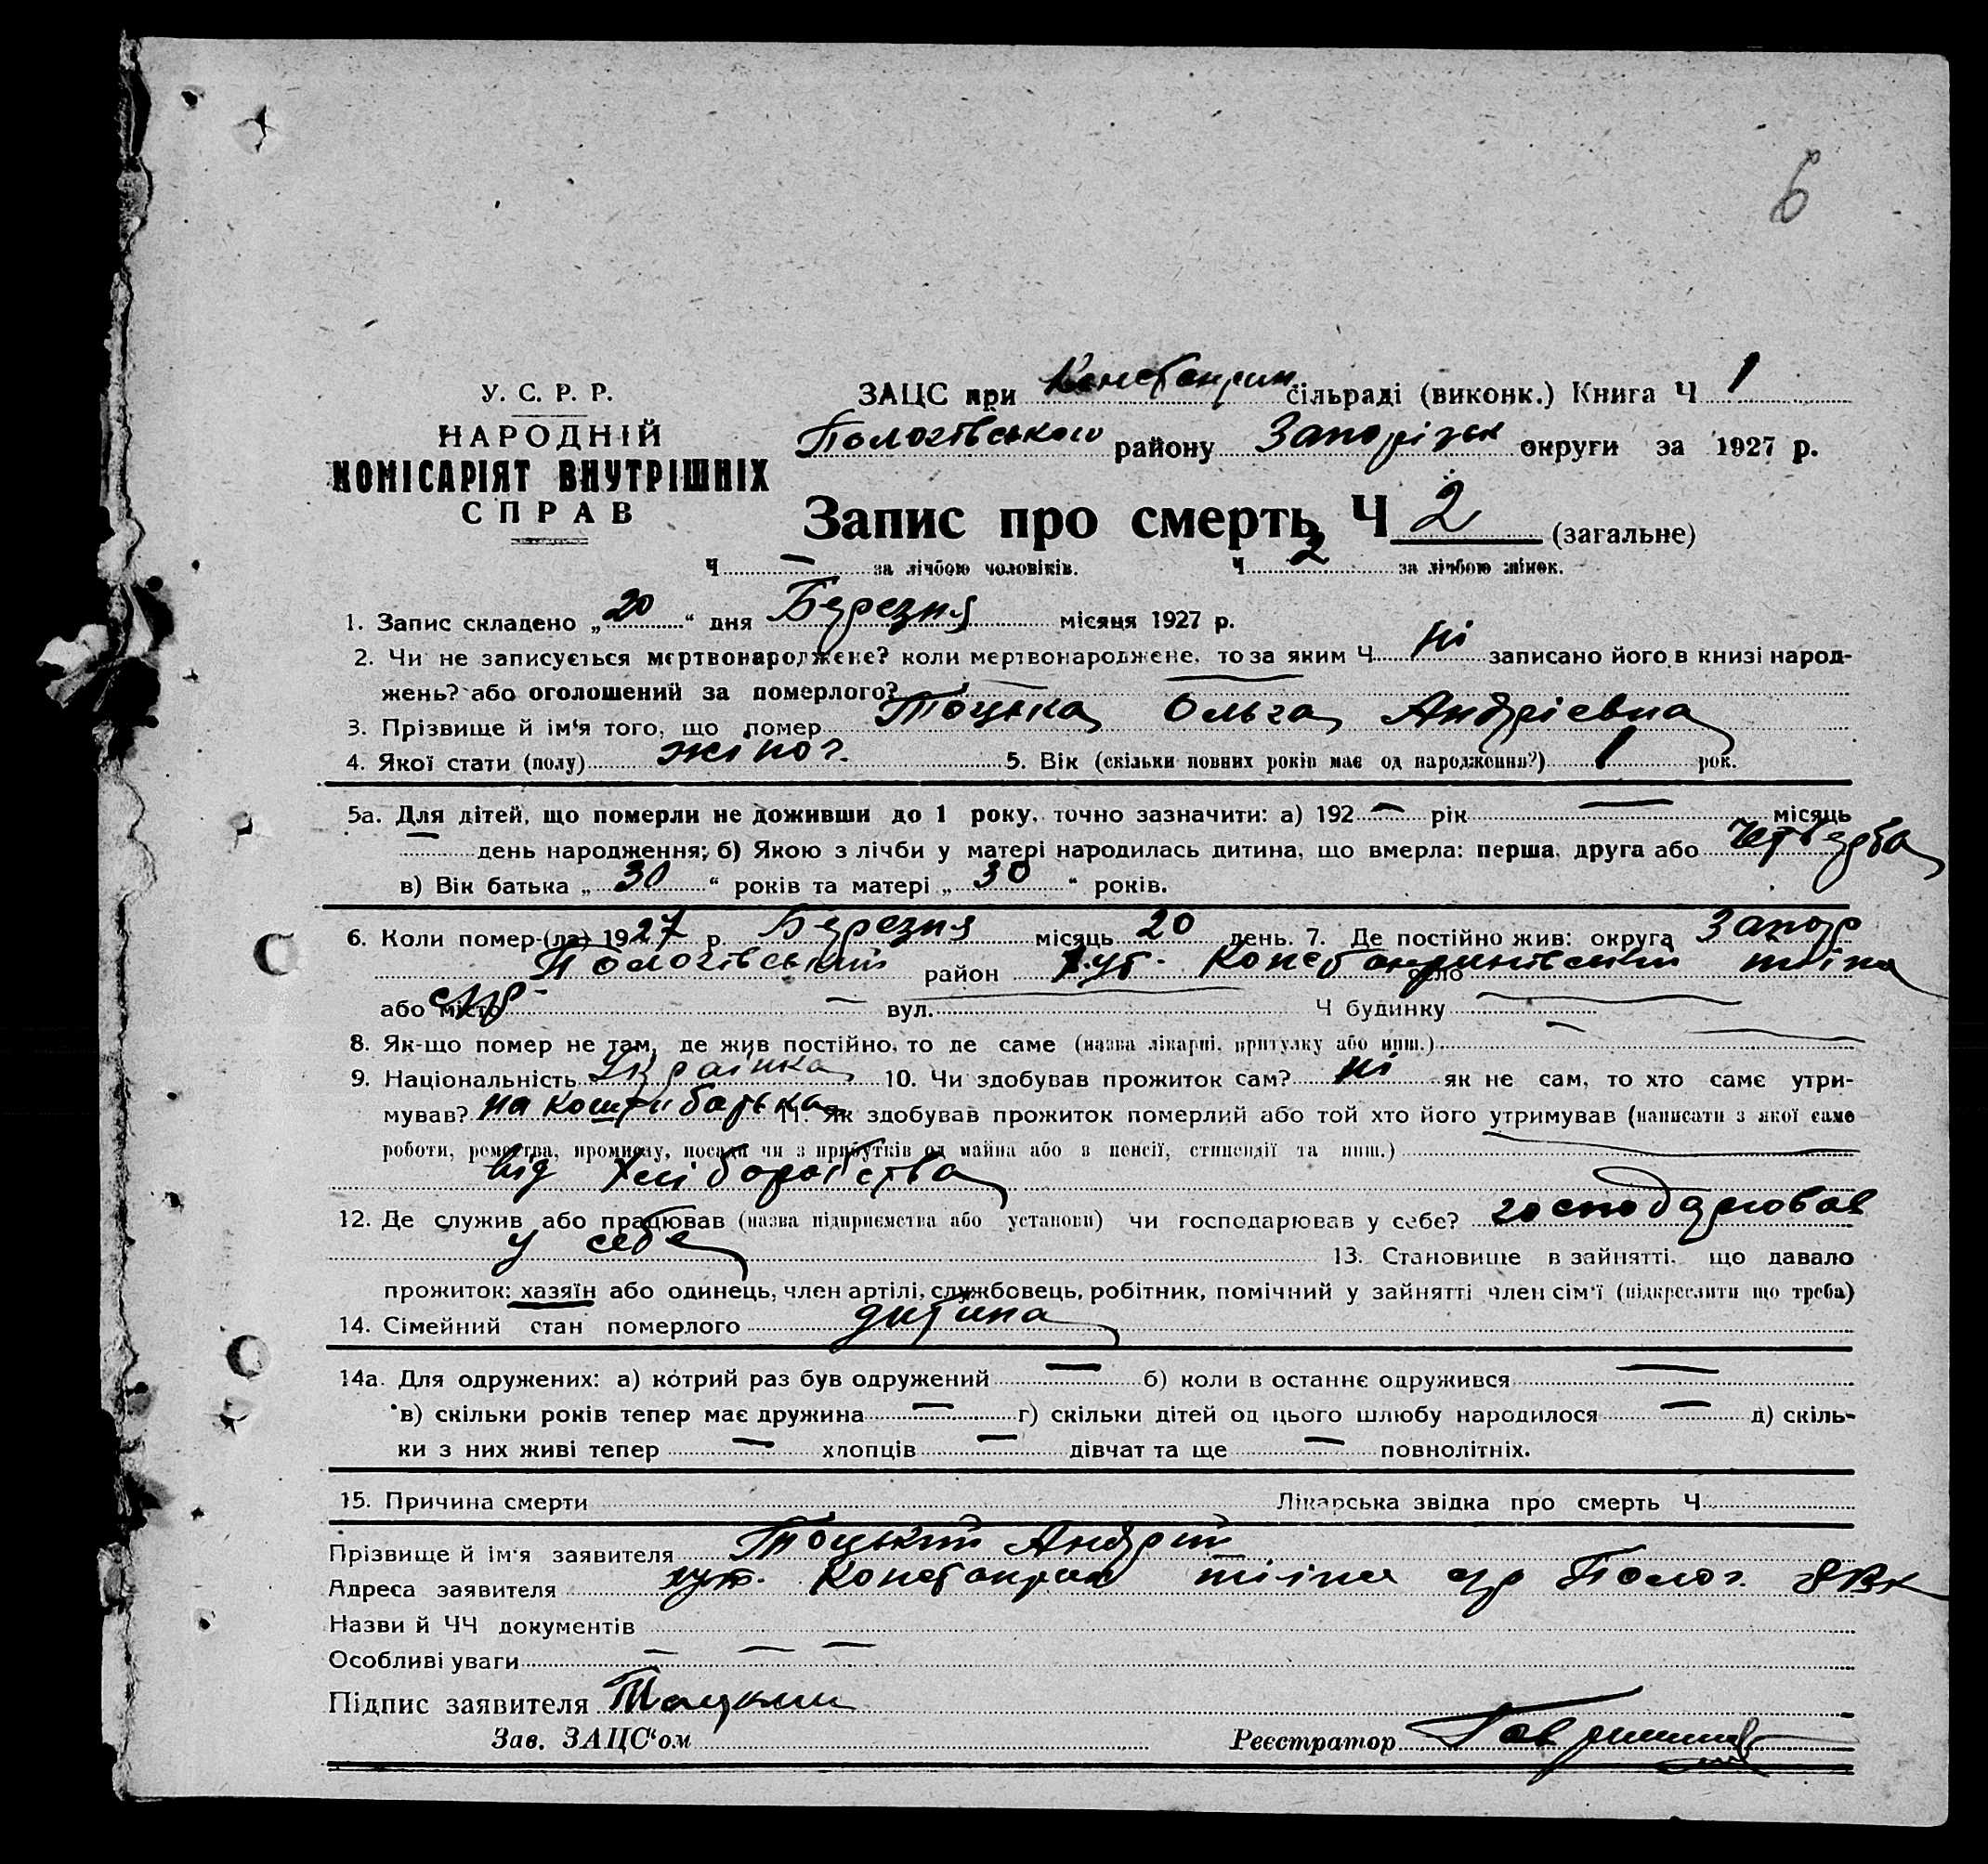 6
У. С. Р. Р.
НАРОДНІЙ
КОМІСАРІЯТ ВНУТРІШНІХ
СПРАВ
ЗАЦС при Констанрин сільраді (виконк.) Книга Ч 1
Пологівського району Запорізьк округи за 1927 р.
Запис про смерть Ч 2 (загальне)
Ч — за лічбою чоловіків. Ч 2 за лічбою жінок.
1. Запис складено „20“ дня Березня місяця 1927 р.
2. Чи не записується мертвонароджене? коли мертвонароджене, то за яким Ч ні записано його в книзі народ-
жень? або оголошений за померлого?
3. Прізвище й ім'я того, що помер Тоцька Ольга Андрієвна
4. Якої стати (полу) жіноч. 5. Вік (скільки повних років має од народження?) 1 рок.
5а. Для дітей, що померли не доживши до 1 року, точно зазначити: а) 192 — рік — місяць
— день народження; б) Якою з лічби у матері народилась дитина, що вмерла: перша, друга або четверта
в) Вік батька „30“ років та матері „30“ років.
6. Коли помер-(ла) 1927 р. Березня місяць 20 день. 7. Де постійно жив: округа Запор
Пологівський район хут. село
або місто — вул. — Ч будинку —
8. Як-що помер не там, де жив постійно, то де саме (назва лікарні, притулку або инш.) —
9. Національність Українка 10. Чи здобував прожиток сам? ні як не сам, то хто саме утри-
мував? на кошти батька 11. Як здобував прожиток померлий або той хто його утримував (написати з якої саме
роботи, ремества, промислу, посади чи з прибутків од майна або з пенсії, стипендії та инш.)
від хліборобства
12. Де служив або працював (назва підприємства або установи) чи господарював у себе? господарював
у себе 13. Становище в зайнятті, що давало
прожиток: хазяїн або одинець, член артілі, службовець, робітник, помічний у зайнятті член сім'ї (підкреслити що треба)
14. Сімейний стан померлого дитина
14а. Для одружених: а) котрий раз був одружений — б) коли в останнє одружився —
в) скільки років тепер має дружина — г) скільки дітей од цього шлюбу народилося — д) скіль-
ки з них живі тепер — хлопців — дівчат та ще — повнолітніх.
15. Причина смерти Лікарська звідка про смерть Ч
Прізвище й ім'я заявителя Тоцький Андрій
Адреса заявителя хут. Полог.
Назви й ЧЧ документів
Особливі уваги — — —
Підпис заявителя Тоцкий
Зав. ЗАЦС'ом Реєстратор